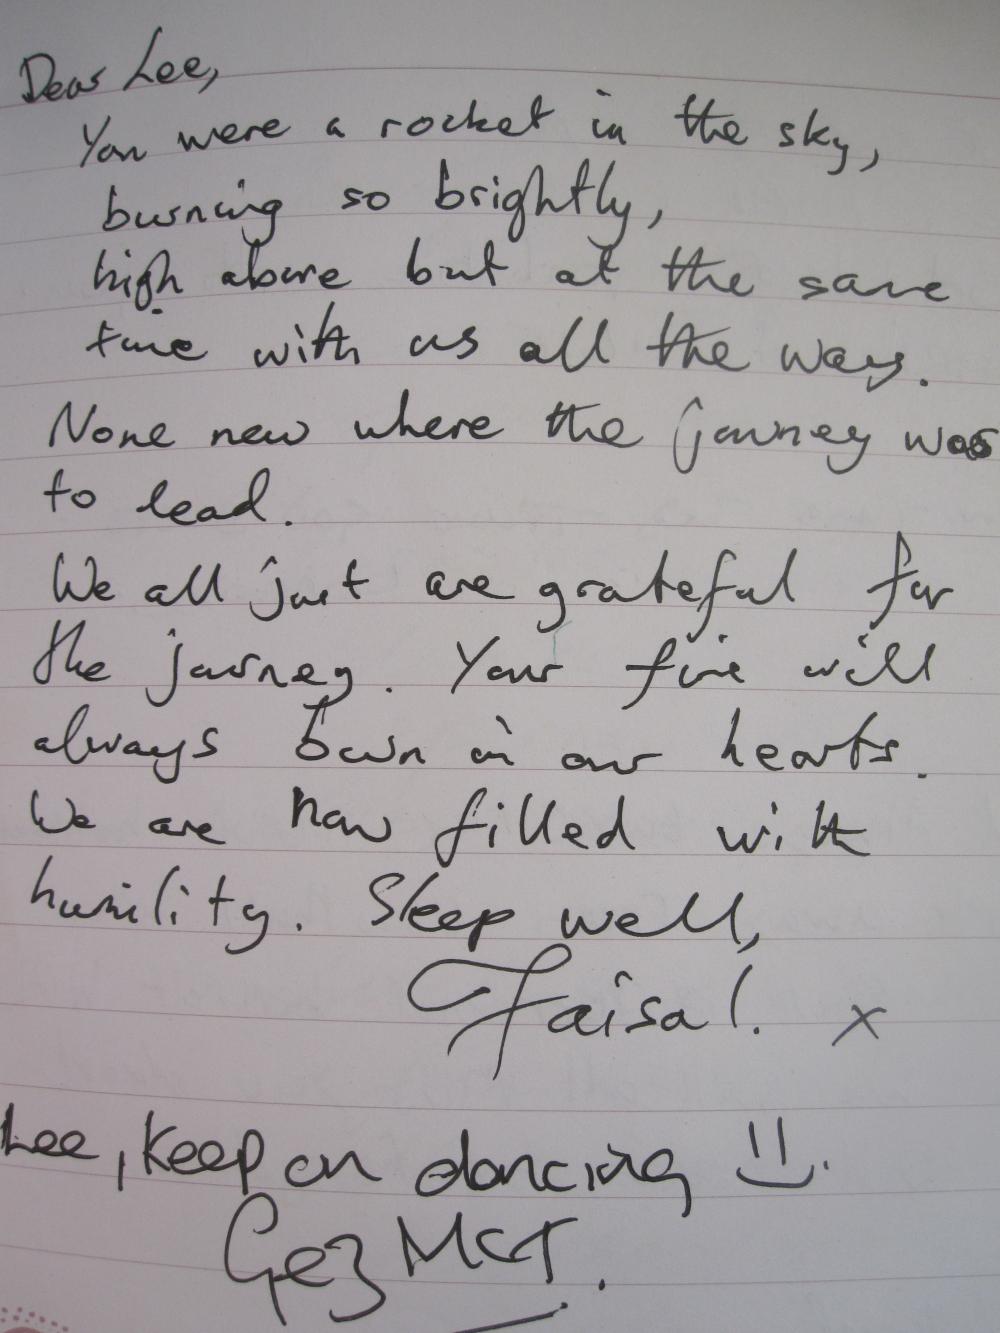 Dear Lee,
You were a rocket in the sky,
burning so brightly,
high above but at the same
time with us all the way.
None new where the journey was
to lead.
We all just are grateful for
the journey. Your fire will
always burn in our hearts.
We are now filled with
humility. Sleep well,
Faisal. x
Lee, keep on dancing =)
Gez McT.